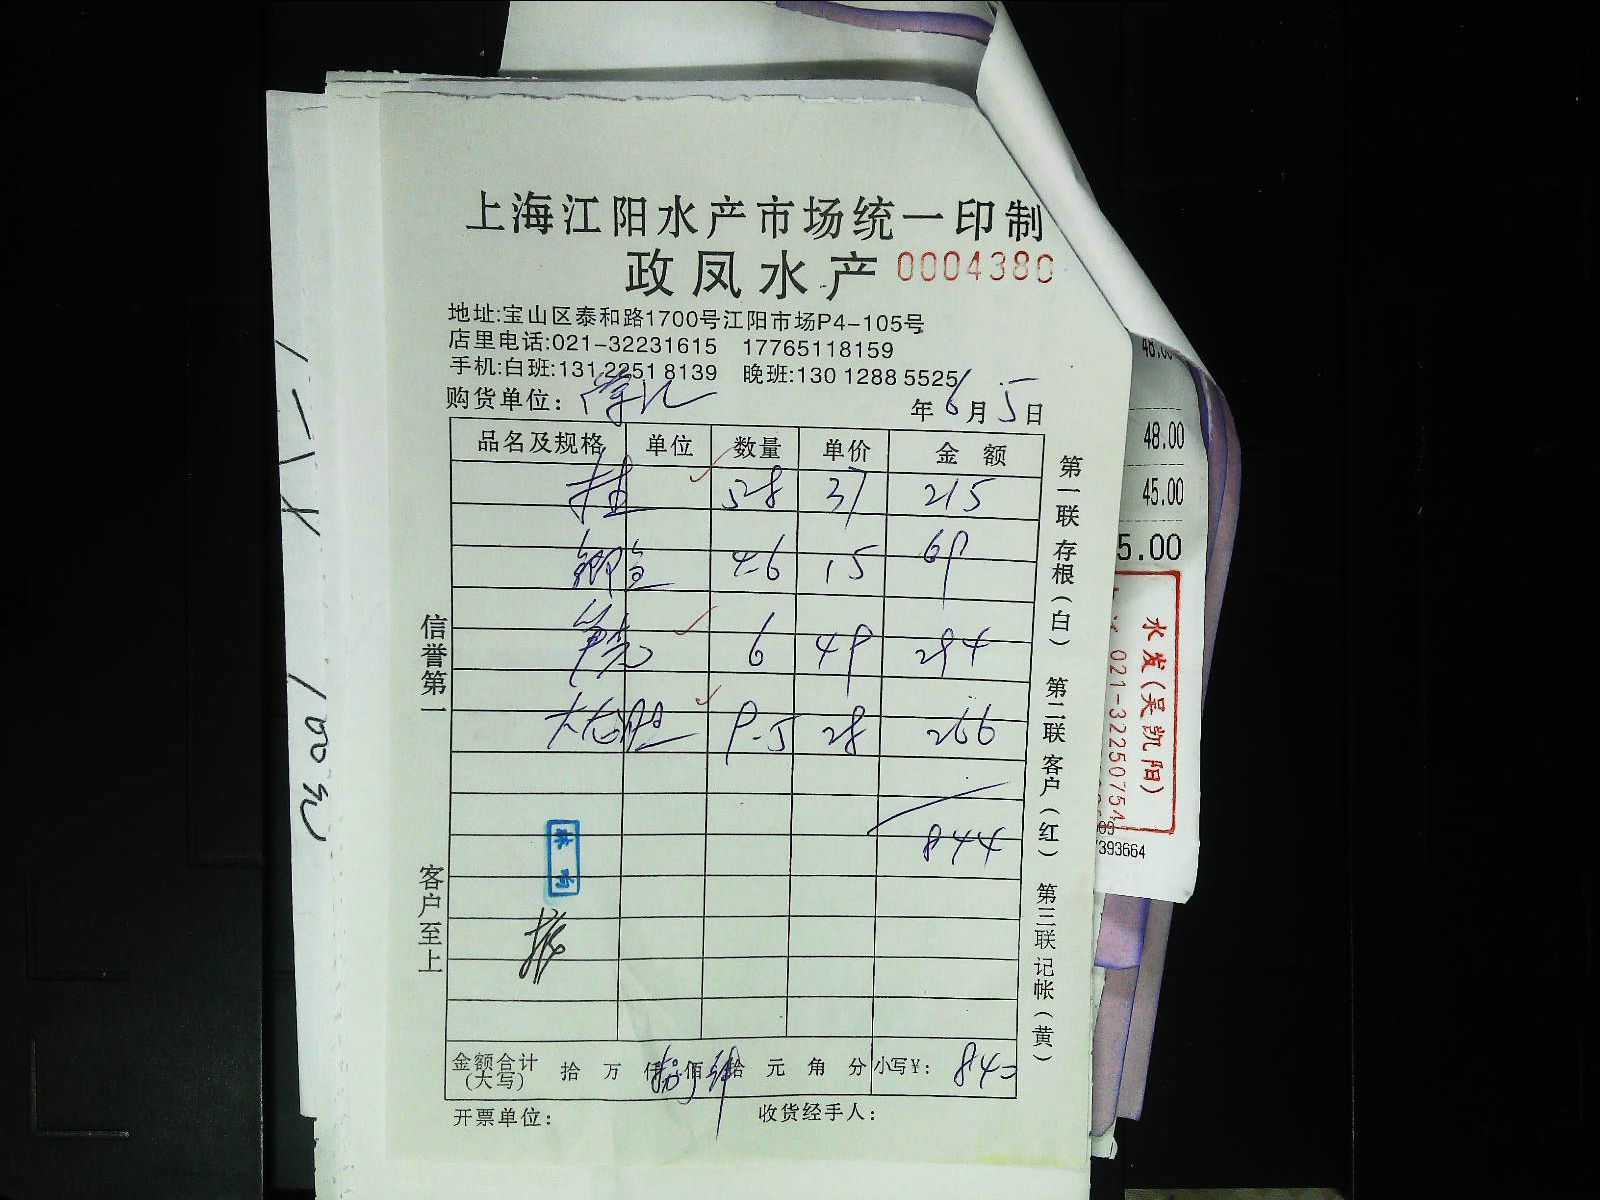 上海江阳水产市场统一印制
政凤水产 0004380
地址:宝山区泰和路1700号江阳市场P4-105号
店里电话:021-32231615 17765118159
手机:白班:131 2251 8139 晚班:130 1288 5525
购货单位: 年 6 月 5 日
品名及规格 单位 数量 单价 金 额
桂 5.8 37 215
鲷鱼 4.6 15 69
笋壳 6 49 294
大龙胆 9.5 28 266
844
金额合计(大写) 拾 万 仟 佰 拾 元 角 分 小写¥: 840
开票单位: 收货经手人:
信誉第一 客户至上
第一联 存根(白) 第二联 客户(红) 第三联 记帐(黄)
48.00
48.00
45.00
5.00
水发(吴凯阳)
021-32250754
393664
100元